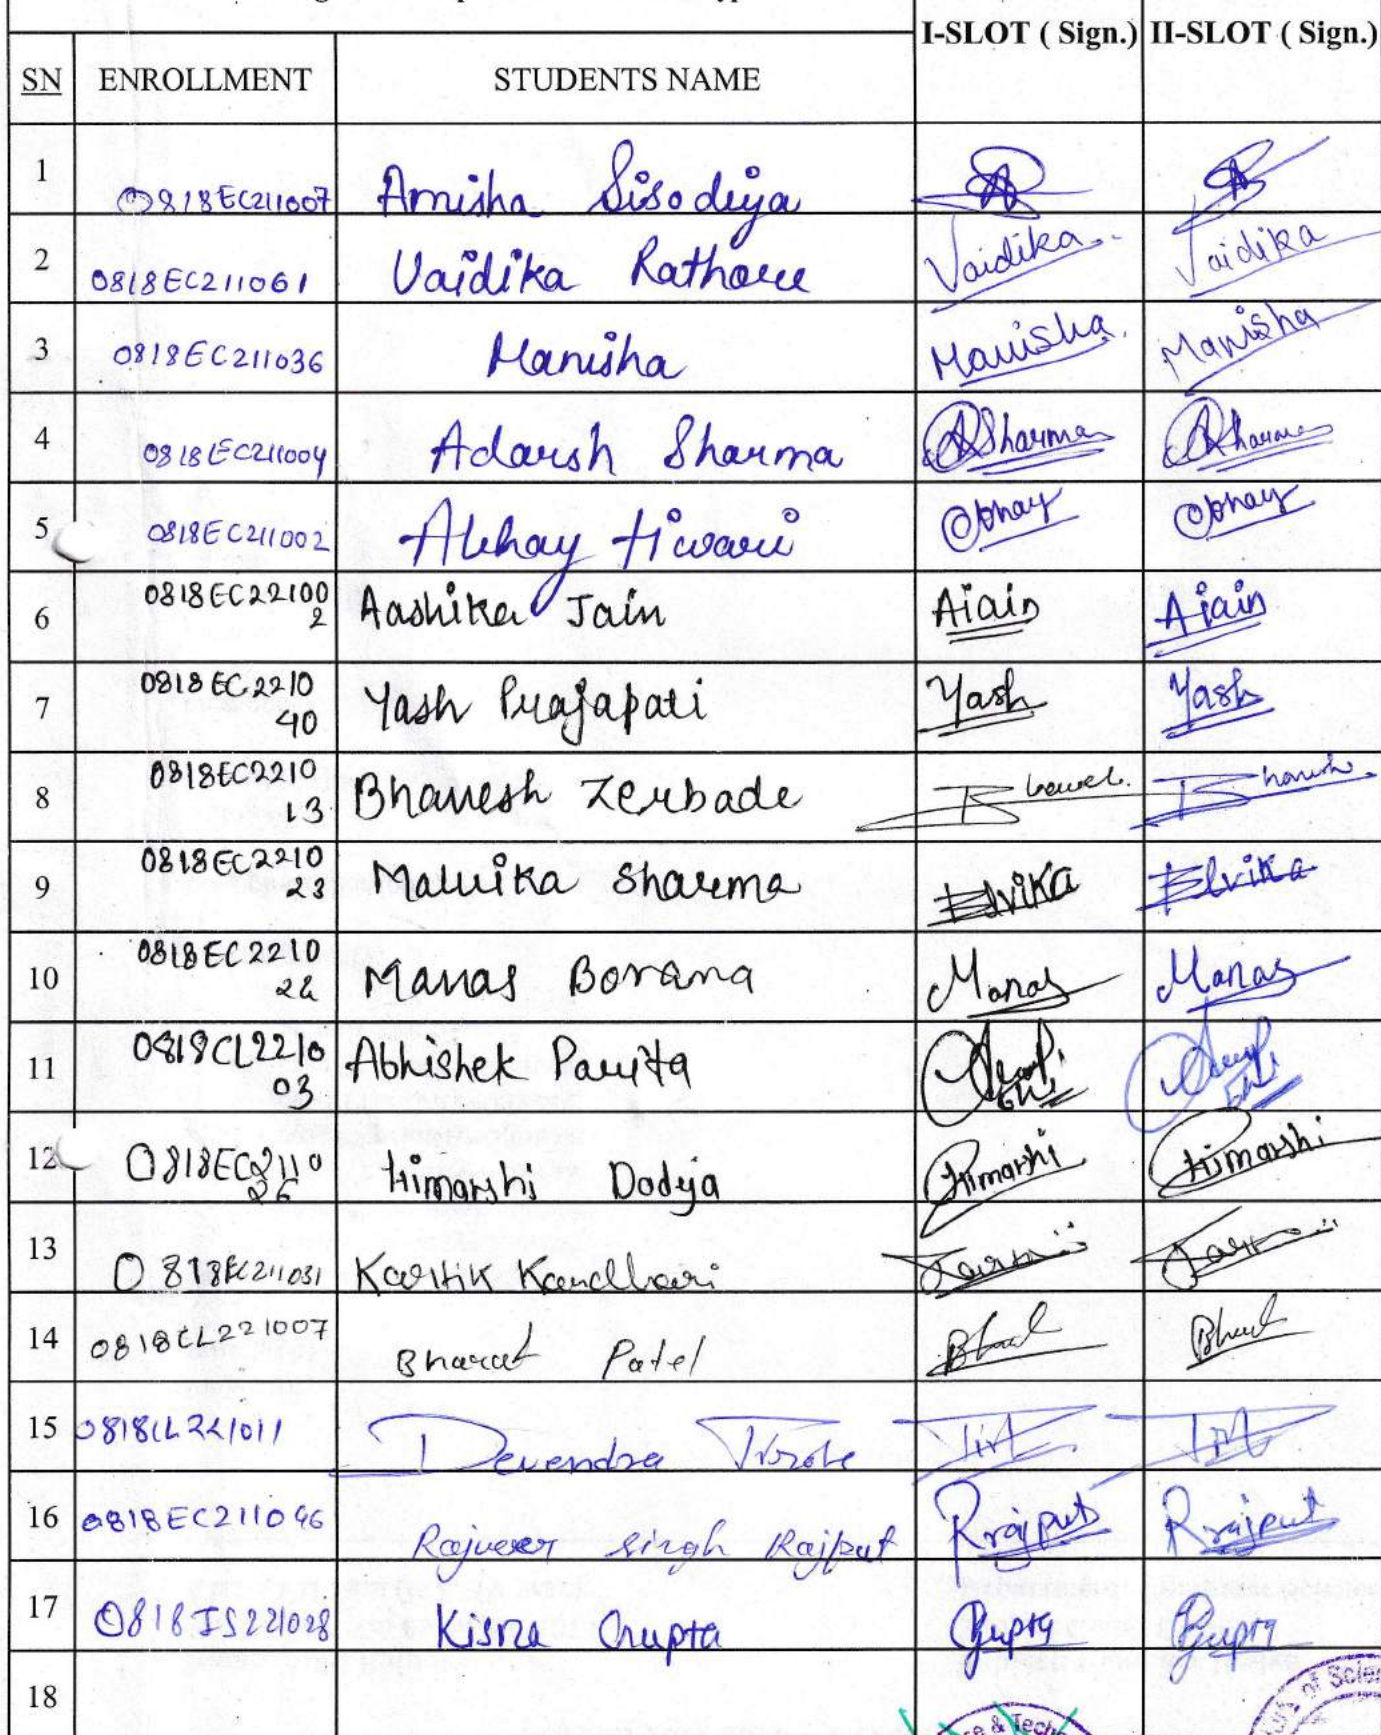 I-SLOT ( Sign.) II-SLOT ( Sign.)
SN ENROLLMENT STUDENTS NAME
1 0818EC211007 Amisha Sisodiya
2 0818EC211061 Vaidika Rathore Vaidika Vaidika
3 0818EC211036 Manisha Manisha Manisha
4 0818EC211004 Adarsh Sharma ASharma ASharma
5 0818EC211002 Abhay Tiwari Abhay Abhay
6 0818EC22100 Aashika Jain AJain AJain
2
7 0818EC2210 Yash Prajapati Yash Yash
40
8 0818EC2210 Bhavesh Zerbade
13
9 0818EC2210 Malvika Sharma Elvika Elvika
23
10 0818EC2210 Manas Borana Manas Manas
11 0818CL2210 Abhishek
03
12 0818EC2110 Himanshi Dodeja Himanshi Himanshi
26
13 0818EC211031 Kartik Kandhari
14 0818CL221007 Bharat Patel
15 0818CL221011 Devendra
16 0818EC211046 Rajveer Singh Rajput Rrajput Rrajput
17 0818IS221028 Gupta Gupta Gupta
18